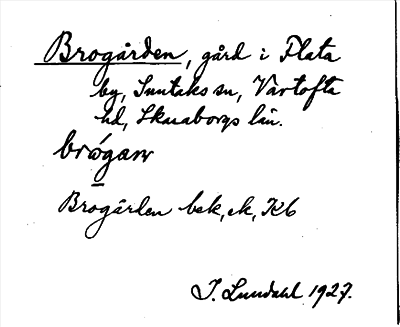 Brogården, gård i Flata
by, Suntaks sn, Vartofta
hd, Skaraborgs län.
brógaɳ
Brogården bek, ek, Kb
I. Lundahl 1927.